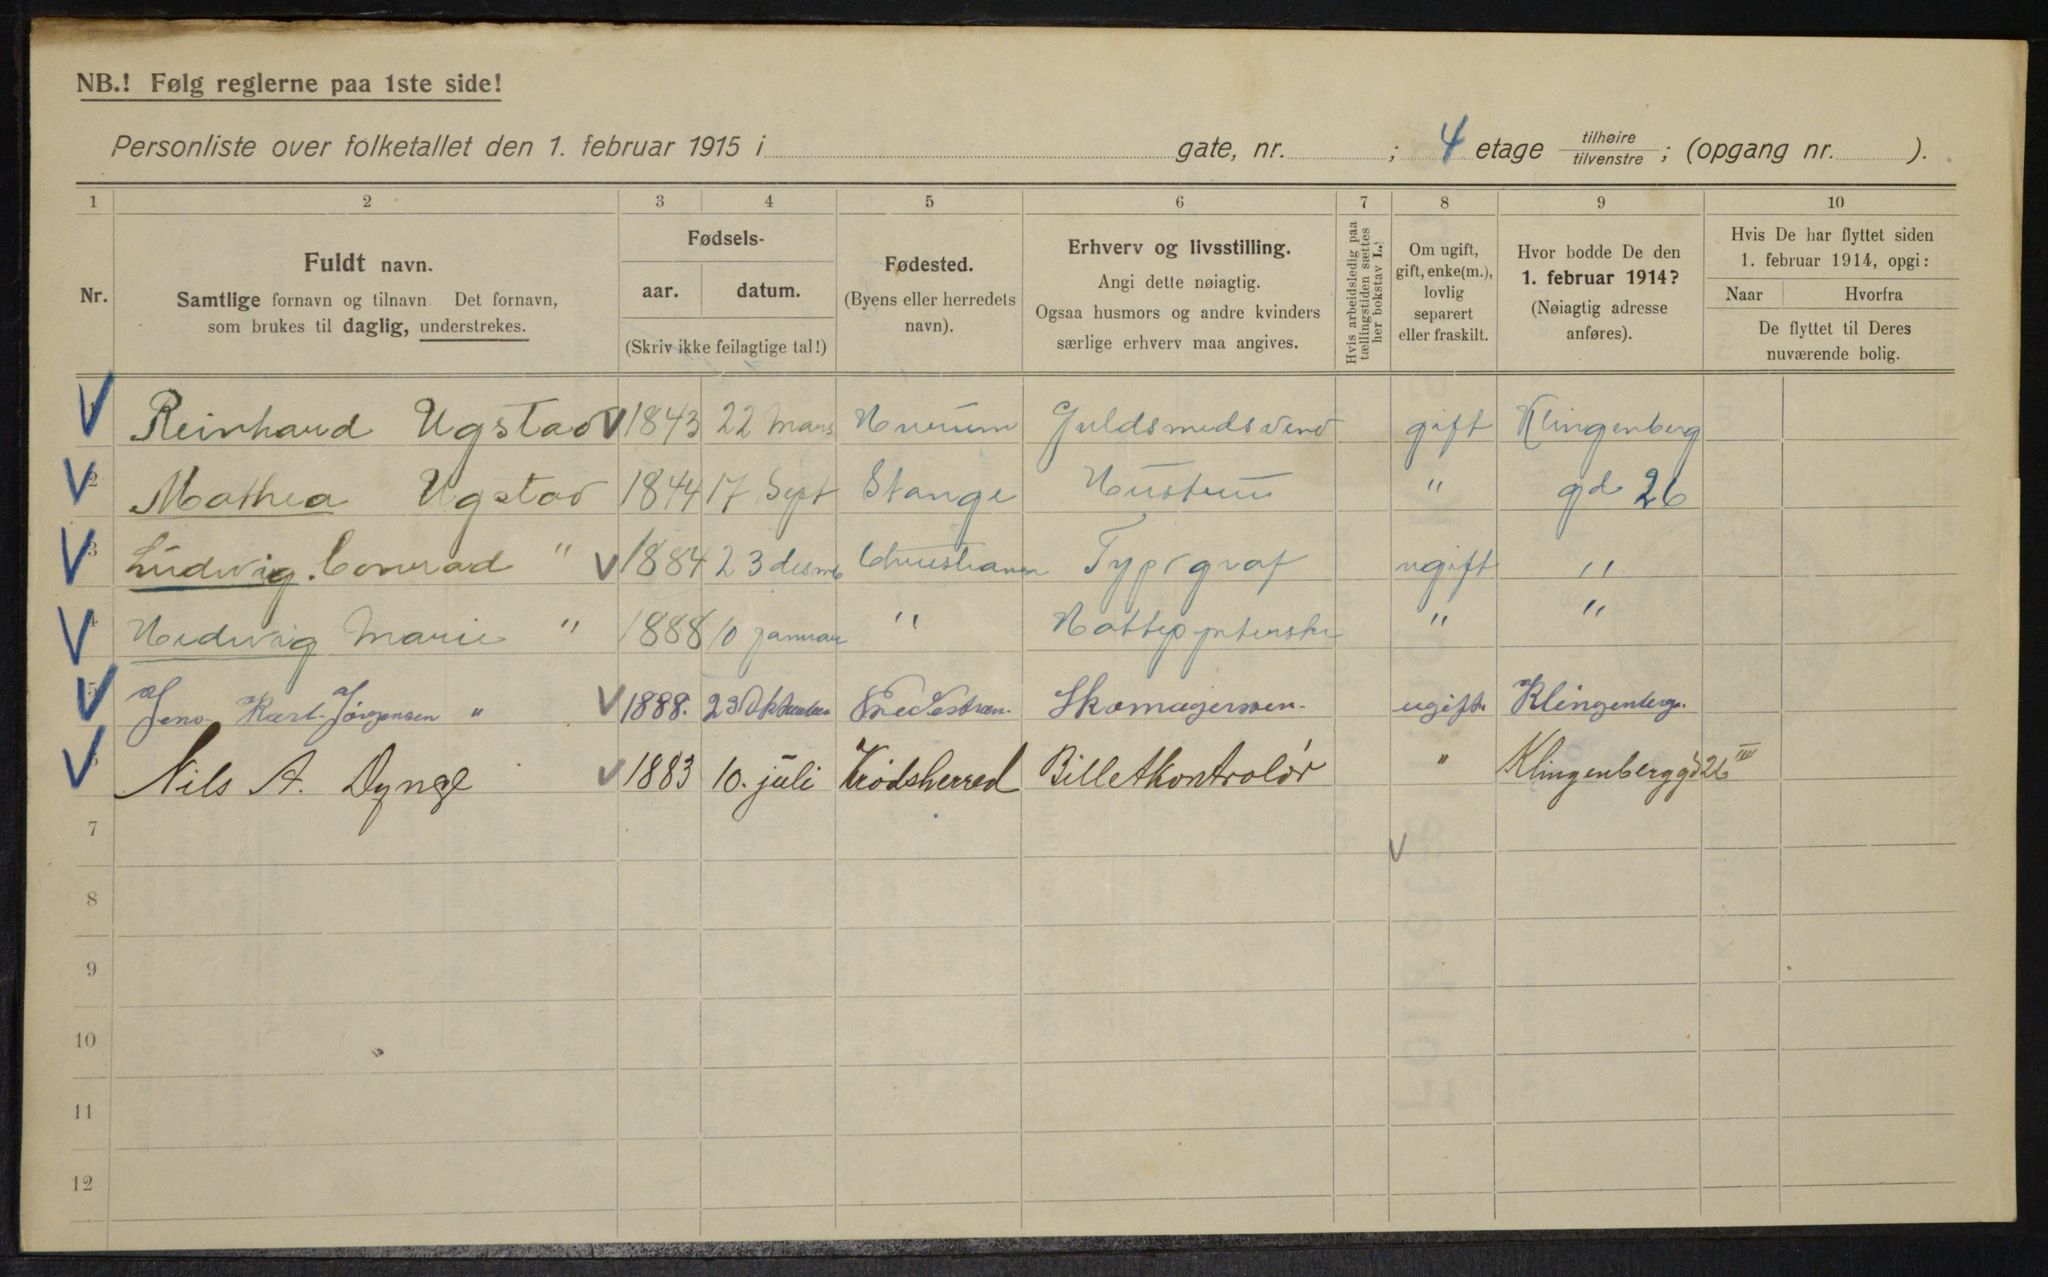 NB.! Følg reglerne paa 1ste side!
Personliste over folketallet den 1. februar 1915 i gate, nr. ; 4 etage tilhøire / tilvenstre ; (opgang nr. ).
1 2 3 4 5 6 7 8 9 10
Nr.
Fuldt navn.
Samtlige fornavn og tilnavn. Det fornavn,
som brukes til daglig, understrekes.
Fødsels-
aar. datum.
(Skriv ikke feilagtige tal!)
Fødested.
(Byens eller herredets
navn).
Erhverv og livsstilling.
Angi dette nøiagtig.
Ogsaa husmors og andre kvinders
særlige erhverv maa angives.
Hvis arbeidsledig paa
tællingstiden sættes
her bokstav L.
Om ugift,
gift, enke(m.),
lovlig
separert
eller fraskilt.
Hvor bodde De den
1. februar 1914?
(Nøiagtig adresse
anføres).
Hvis De har flyttet siden
1. februar 1914, opgi:
Naar Hvorfra
De flyttet til Deres
nuværende bolig.
1 Reinhard Ugstad 1843 22 Mars Hurum Guldsmedsvend gift Klingenberg
2 Mathea Ugstad 1844 17 Sept Stange Hustru " gd 26
3 Ludvig Conrad " 1884 23 desmb Christiania Typograf ugift "
4 Hedvig Marie " 1888 10 januar " " "
5 Jens Karl Jörgensen " 1888. 23 Oktober Skomagersven. ugift. Klingenberg.
6 Nils A. Dynge 1883 10. juli Krødsherred Billetkontrolør " Klingenberggd 26 IIII
7
8
9
10
11
12